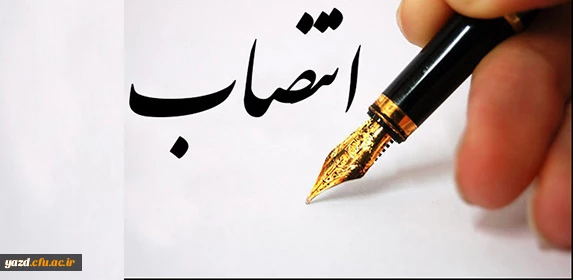 انتصاب
yazd.cfu.ac.ir